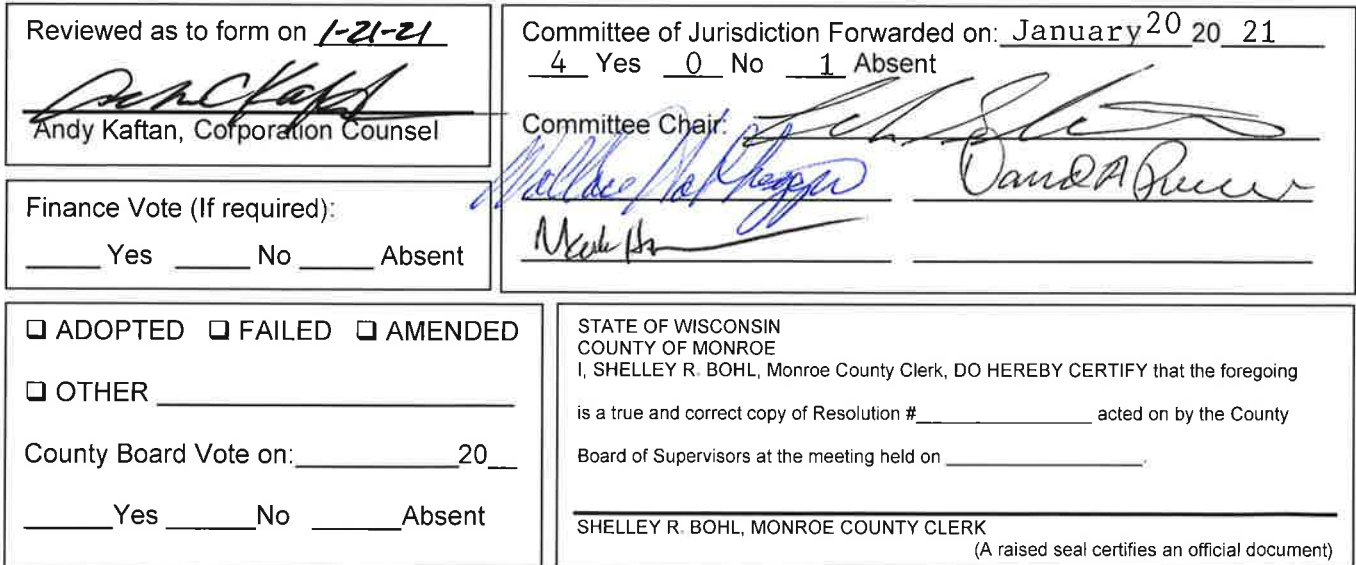 Reviewed as to form on 1-21-21
Andy Kaftan, Corporation Counsel
Committee of Jurisdiction Forwarded on: January 20 20 21
4 Yes 0 No 1 Absent
Committee Chair:
Finance Vote (If required):
_____ Yes _____ No _____ Absent
❑ ADOPTED ❑ FAILED ❑ AMENDED
❑ OTHER _____________________
County Board Vote on:__________20__
_____Yes _____No _____Absent
STATE OF WISCONSIN
COUNTY OF MONROE
I, SHELLEY R. BOHL, Monroe County Clerk, DO HEREBY CERTIFY that the foregoing
is a true and correct copy of Resolution #__________________ acted on by the County
Board of Supervisors at the meeting held on ____________________.
SHELLEY R. BOHL, MONROE COUNTY CLERK
(A raised seal certifies an official document)